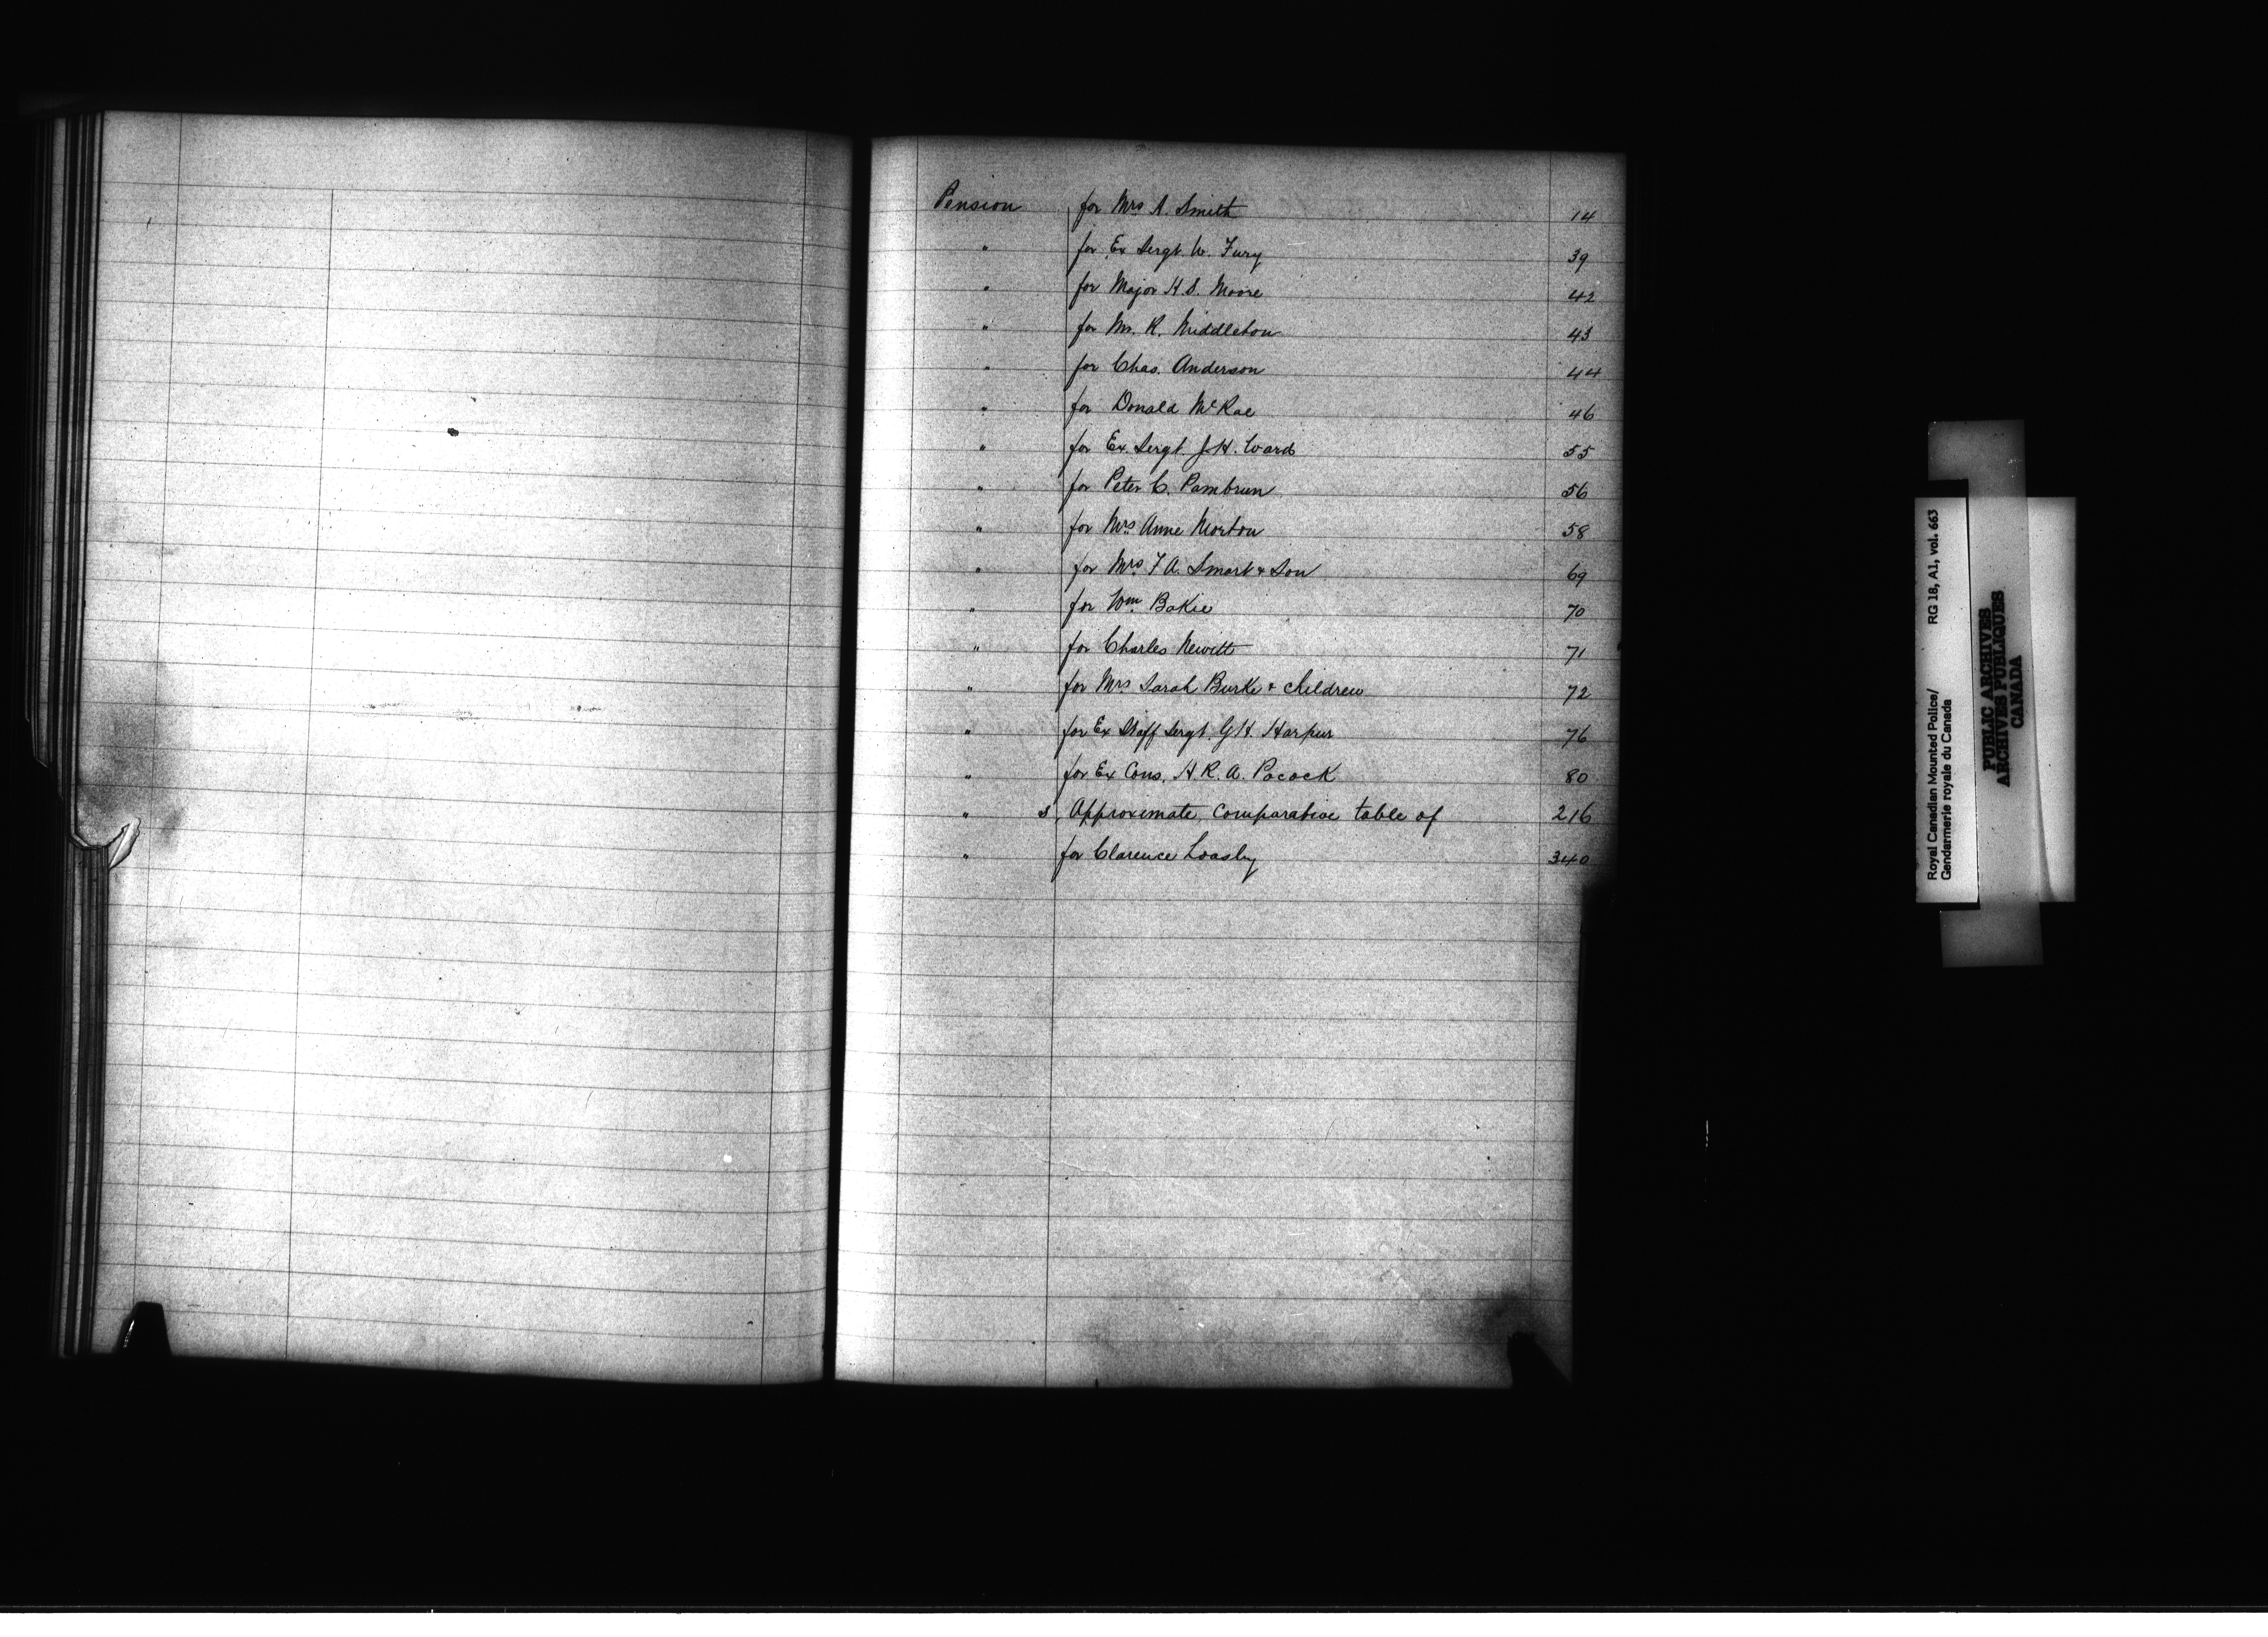 Pension for Mrs A. Smith 14
" for Ex Sergt. W. Fury 39
" for Major H.S. Moore 42
" for Mr. R. Middleton 43
" for Chas. Anderson 44
" for Donald McRae 46
" for Ex. Sergt. J.H. Ward 55
" for Peter C. Pambrun 56
" for Mrs. Anne Morton 58
" for Mrs. F A. Smart & Son 69
" for Wm. Bakie 70
" for Charles Hewitt 71
" for Mrs Sarah Burke & children 72
" for Ex Staff Sergt. G H. Harpur 76
" for Ex Cons. H. R. A. Pocock 80
" s, Approximate, comparative table of 216
" for Clarence Loasby 340
Royal Canadian Mounted Police/ RG 18, A1, vol. 663
Gendarmerie royale du Canada
PUBLIC ARCHIVES
ARCHIVES PUBLIQUES
CANADA